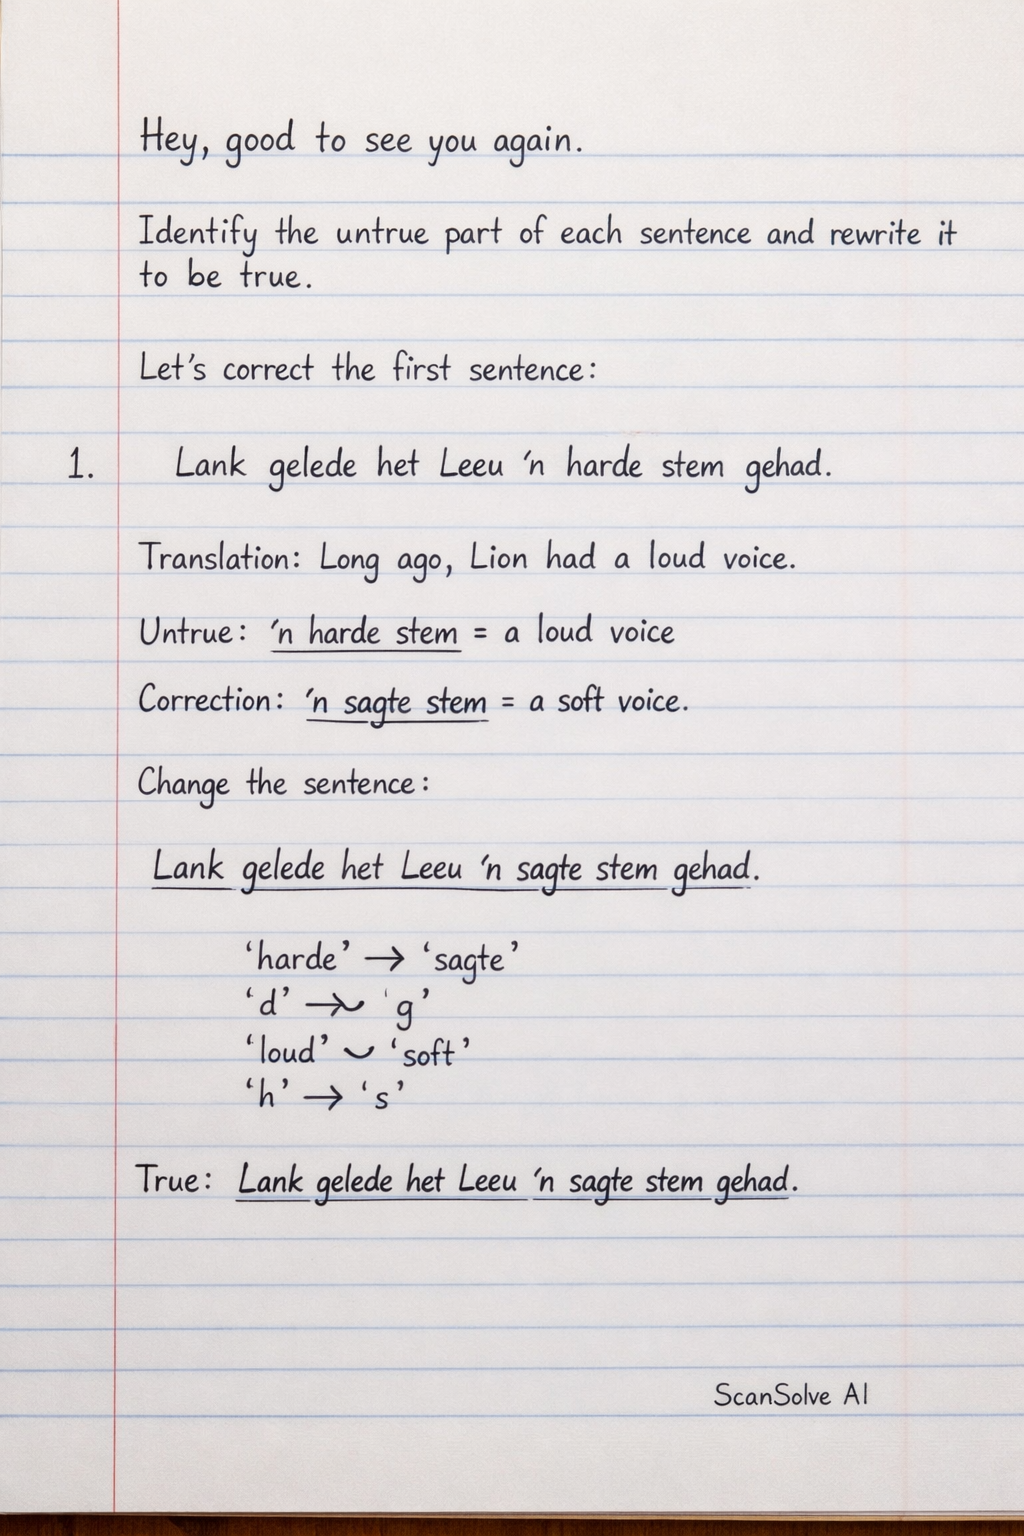 Hey, good to see you again.
Identify the untrue part of each sentence and rewrite it
to be true.
Let's correct the first sentence:
1. Lank gelede het Leeu 'n harde stem gehad.
Translation: Long ago, Lion had a loud voice.
Untrue: 'n harde stem = a loud voice
Correction: 'n sagte stem = a soft voice.
Change the sentence:
Lank gelede het Leeu 'n sagte stem gehad.
'harde' → 'sagte'
'd' → 'g'
'loud' ⌣ 'soft'
'h' → 's'
True: Lank gelede het Leeu 'n sagte stem gehad.
ScanSolve AI